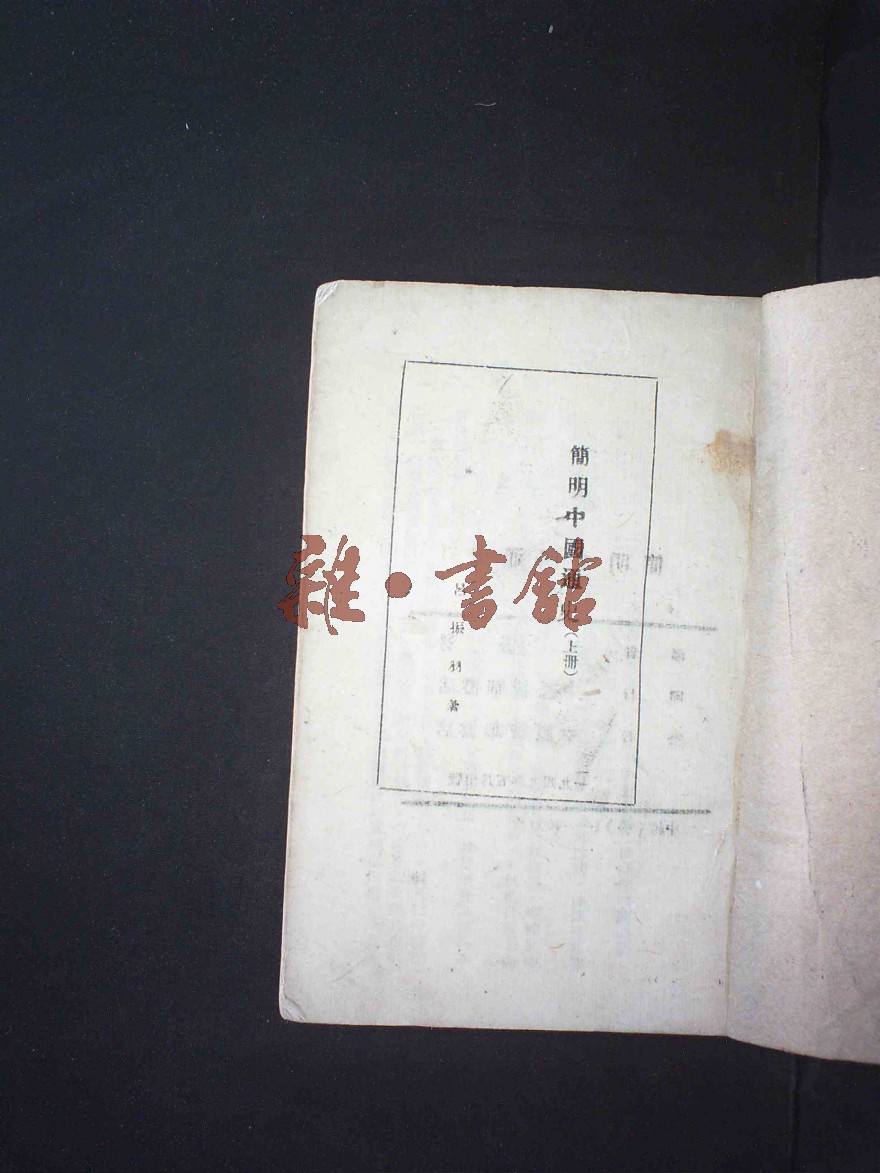 簡明中國通史(上册)
呂振羽著
雜·書館